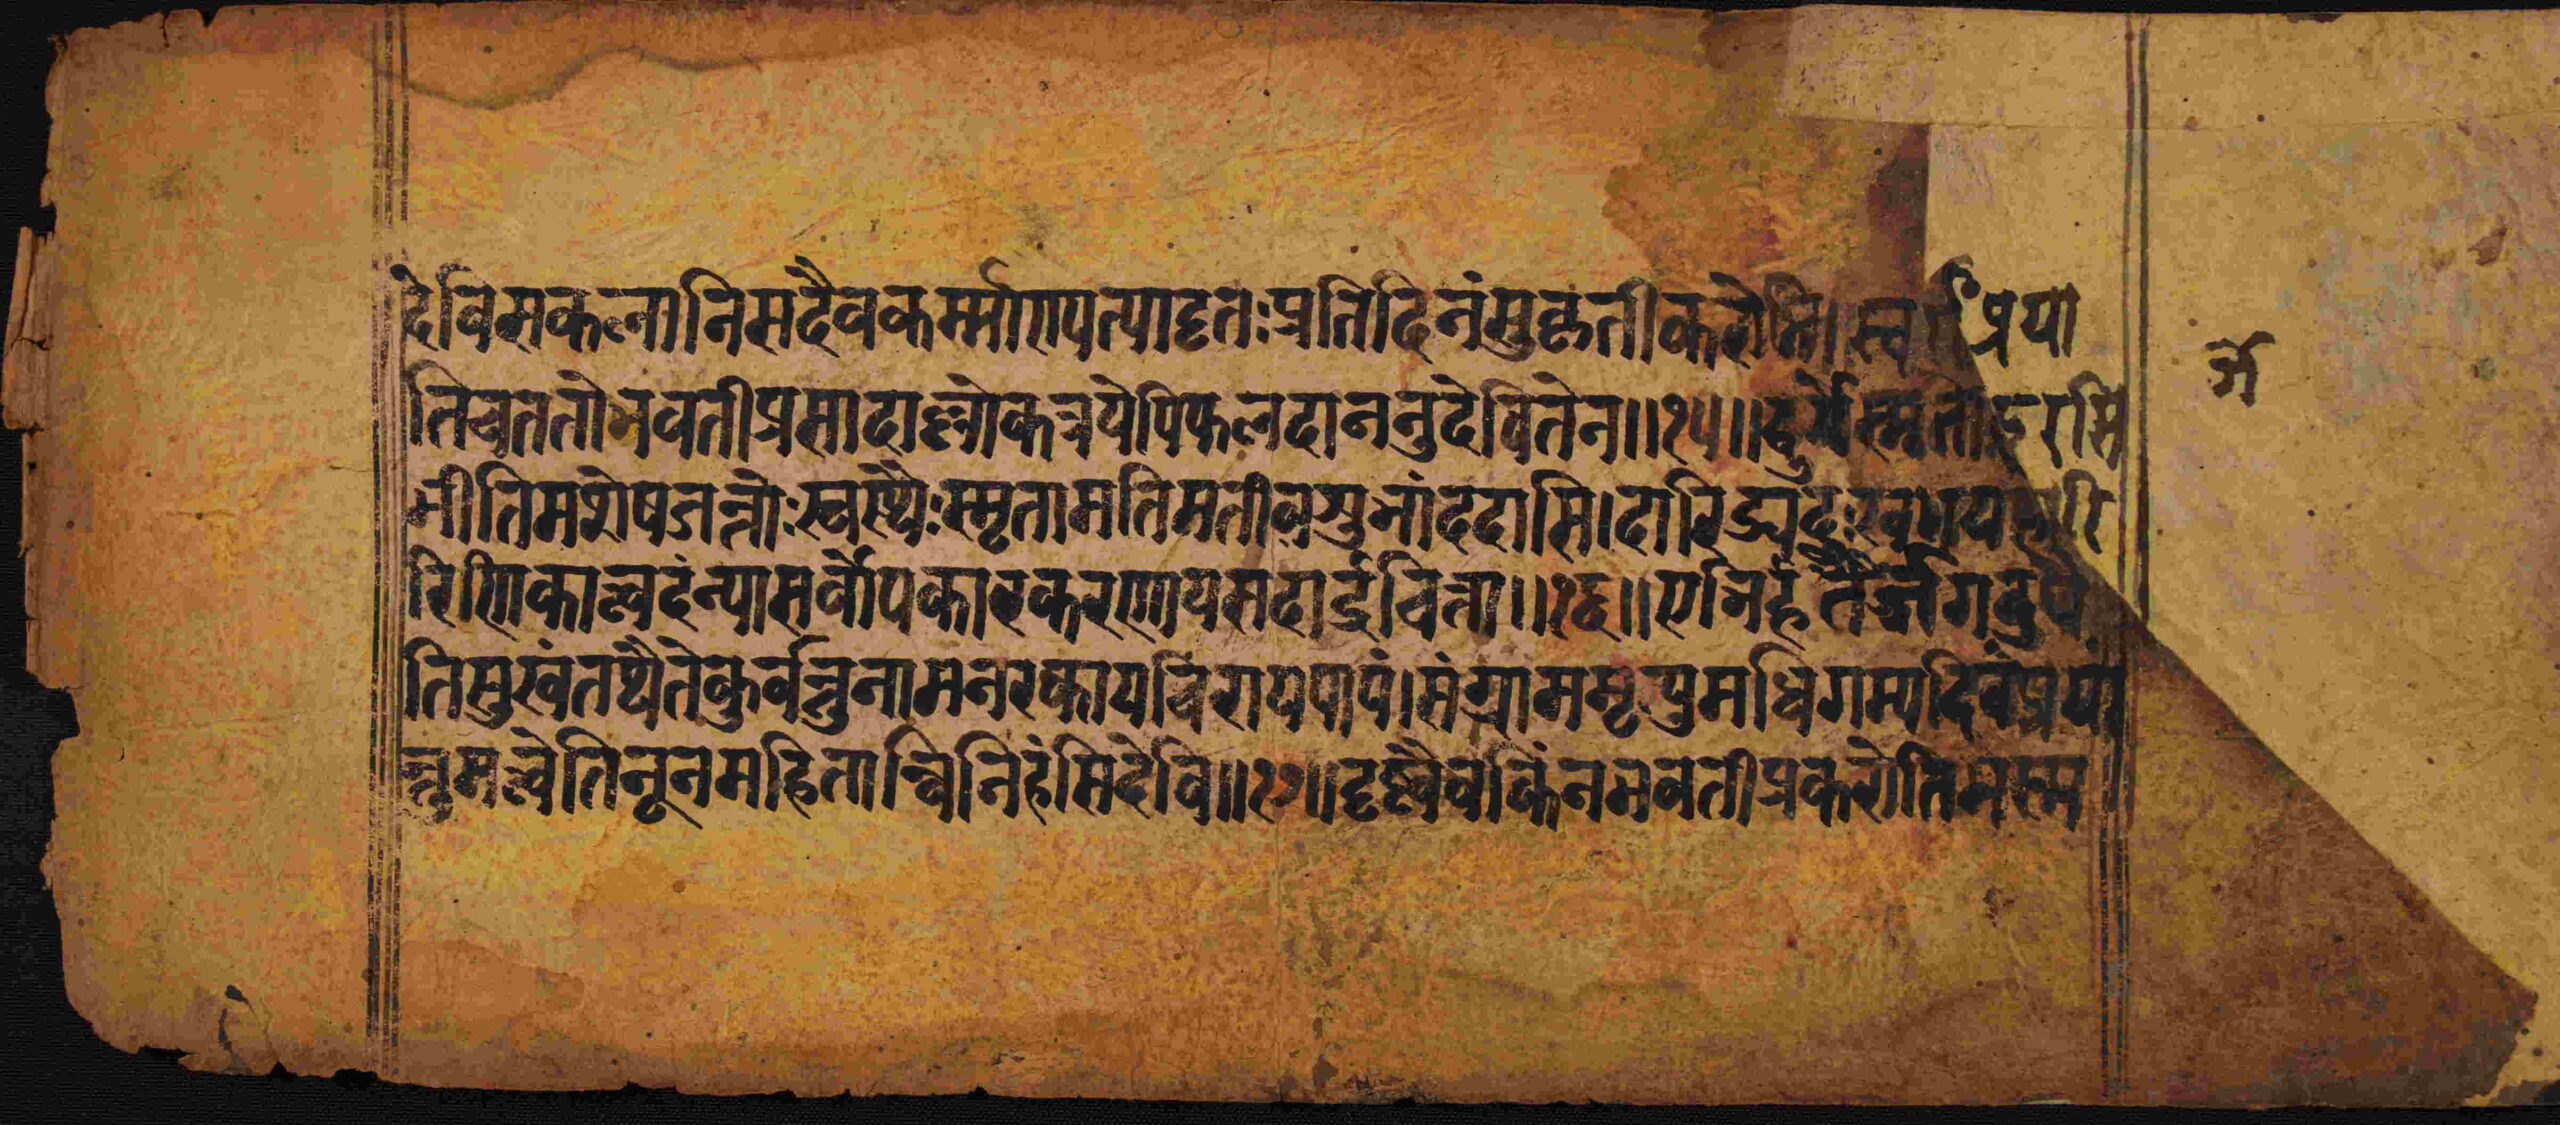 देविसकलानिसदैवकर्म्माण्यत्यादृतःप्रतिदिनंसुकृतीकरोति।स्वर्गंप्रया
तिचततोभवतीप्रसादाल्लोकत्रयेपिफलदाननुदेवितेन॥१५॥दुर्गेस्मृताहरसि
भीतिमशेषजन्तोःस्वस्थैःस्मृतामतिमतीवशुभांददासि।दारिद्र्यदुःखभयहारि
रिणिकात्वदन्यासर्वोपकारकरणायसदार्द्रचित्ता॥१६॥एभिर्हतैर्जगदुपै
तिसुखंतथैतेकुर्वन्तुनामनरकायचिरायपापं।संग्राममृत्युमधिगम्यदिवंप्रयां
न्तुमत्वेतिनूनमहितान्विनिहंसिदेवि॥१७॥दृष्ट्वैवकिंनभवतीप्रकरोतिभस्म
र्गे